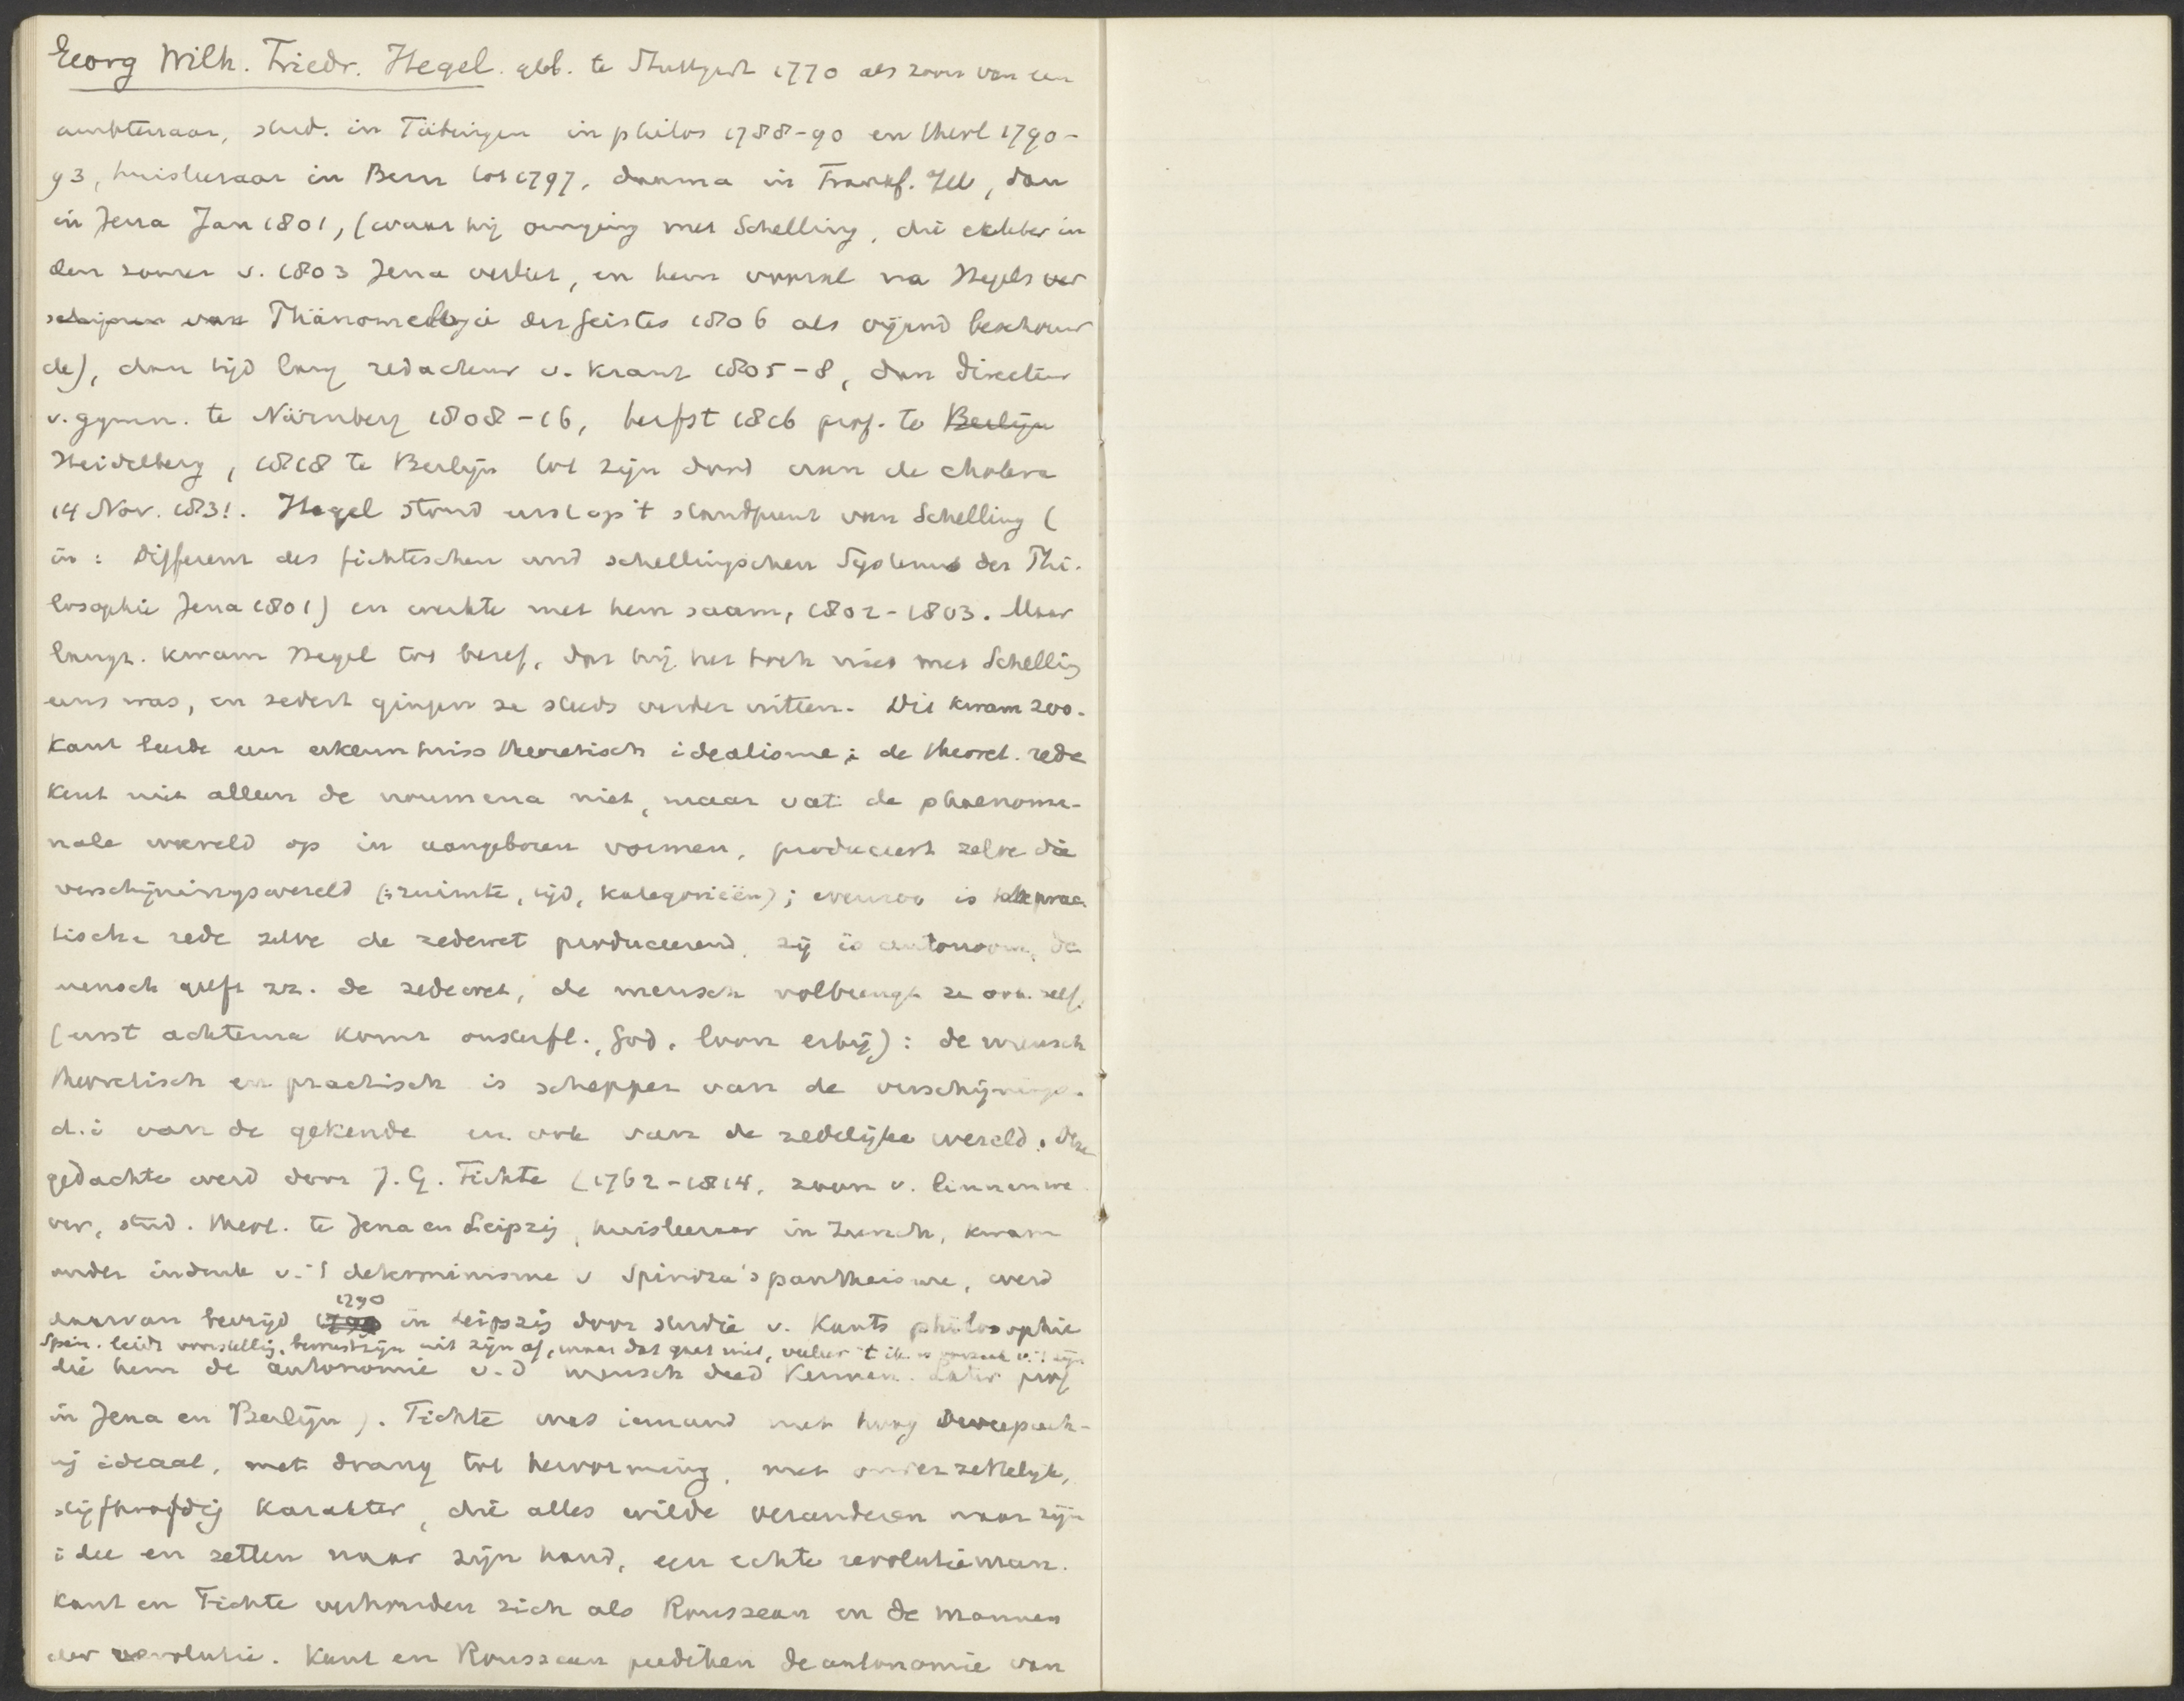 Georg Wilh. Friedr. Hegel. geb. te Stuttgart 1770 als zoon van een
ambtenaar, stud. in Tübingen in philos 1788-90 en theol 1790-
93, huisleeraar in Bern tot 1797, daarna in Frankf. , dan
in Jena Jan 1801, (waar hij omging met Schelling, die echter in
den zomer v. 1803 Jena verliet, en hem vooral na Hegels ver
schijnen van Phänomelogie des Geistes 1806 als vijand beschouw
de), dan tijd lang redacteur v. krant 1805-8, dan directeur
v. gymn. te Nürnberg 1808-16, herfst 1816 prof. te Berlijn
Heidelberg, 1818 te Berlijn tot zijn dood aan de cholera
14 Nov. 1831. Hegel stond eerst op 't standpunt van Schelling (
in: Differenz des fichteschen und schellingschen Systems der Phi-
losophie Jena 1801) en werkte met hem saam, 1802-1803. Maar
langz. kwam Hegel tot besef, dat hij het toch niet met Schelling
eens was, en sedert gingen ze steeds verder uiteen. Dit kwam zoo.
Kant leerde een erkenntniss theoretisch idealisme; de theoret. rede
kent niet alleen de noumena niet, maar vat de phaenome-
nale wereld op in aangeboren vormen, produceert zelve die
verschijningswereld (: ruimte, tijd, kategorieën); evenzoo is de prac
tische rede zelve de zedewet produceerend, zij is autonoom, de
mensch geeft zz. de zedewet, de mensch volbrengt ze ook zelf.
(eerst achterna komt onsterfl., God, loon erbij): de mensch
theoretisch en practisch is schepper van de verschijnings-
d.i van de gekende en ook van de zedelijke wereld. Deze
gedachte werd door J. G. Fichte (1762-1814, zoon v. linnenwe
ver, stud. theol. te Jena en Leipzig, huisleeraar in Zurich, kwam
onder indruk v. 't determinisme v Spinoza's pantheisme, werd
daarvan bevrijd 1790 in Leipzig door studie v. Kants philosophie
Spin. leidt voorstellig, bewustzijn uit zijn af, maar dat gaat niet, veeleer 't ik is oorzaak v. 't zijn
die hem de autonomie v. d mensch deed kennen. Later prof
in Jena en Berlijn). Fichte was iemand met hoog dweepach-
ig ideaal, met drang tot hervorming, met onverzettelijk,
stijfhoofdig karakter, die alles wilde veranderen naar zijn
idee en zetten naar zijn hand, een echte revolutieman.
Kant en Fichte verhouden zich als Rousseau en de mannen
der revolutie. Kant en Rousseau prediken de autonomie van